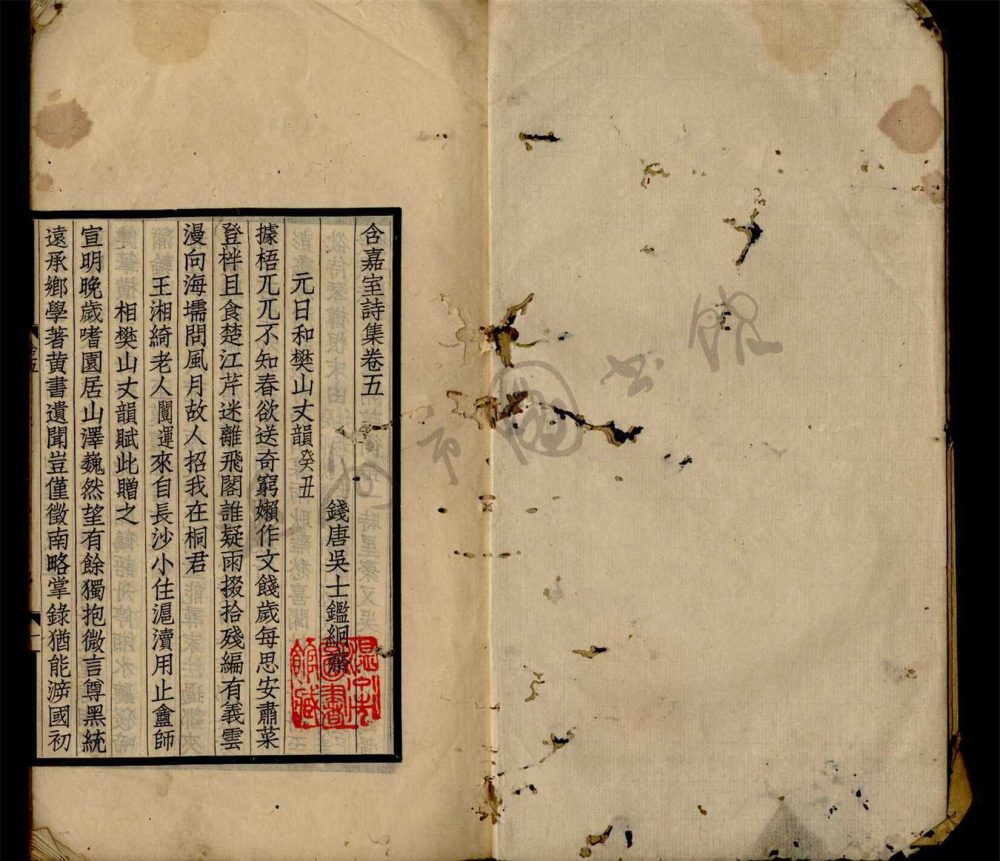 含嘉室詩集卷五
錢唐吳士鑑絅齋
元日和樊山丈韻癸丑
據梧兀兀不知春欲送奇窮嬾作文餞歲每思安肅菜
登柈且食楚江芹迷離飛閣誰疑雨掇拾殘編有義雲
漫向海壖問風月故人招我在桐君
王湘綺老人闓運來自長沙小住滬瀆用止盦師
相樊山丈韻賦此贈之
宣明晚歲嗜園居山澤巍然望有餘獨抱微言尊黑統
遠承鄉學著黃書遺聞豈僅徵南略掌錄猶能㴑國初
圖書館藏